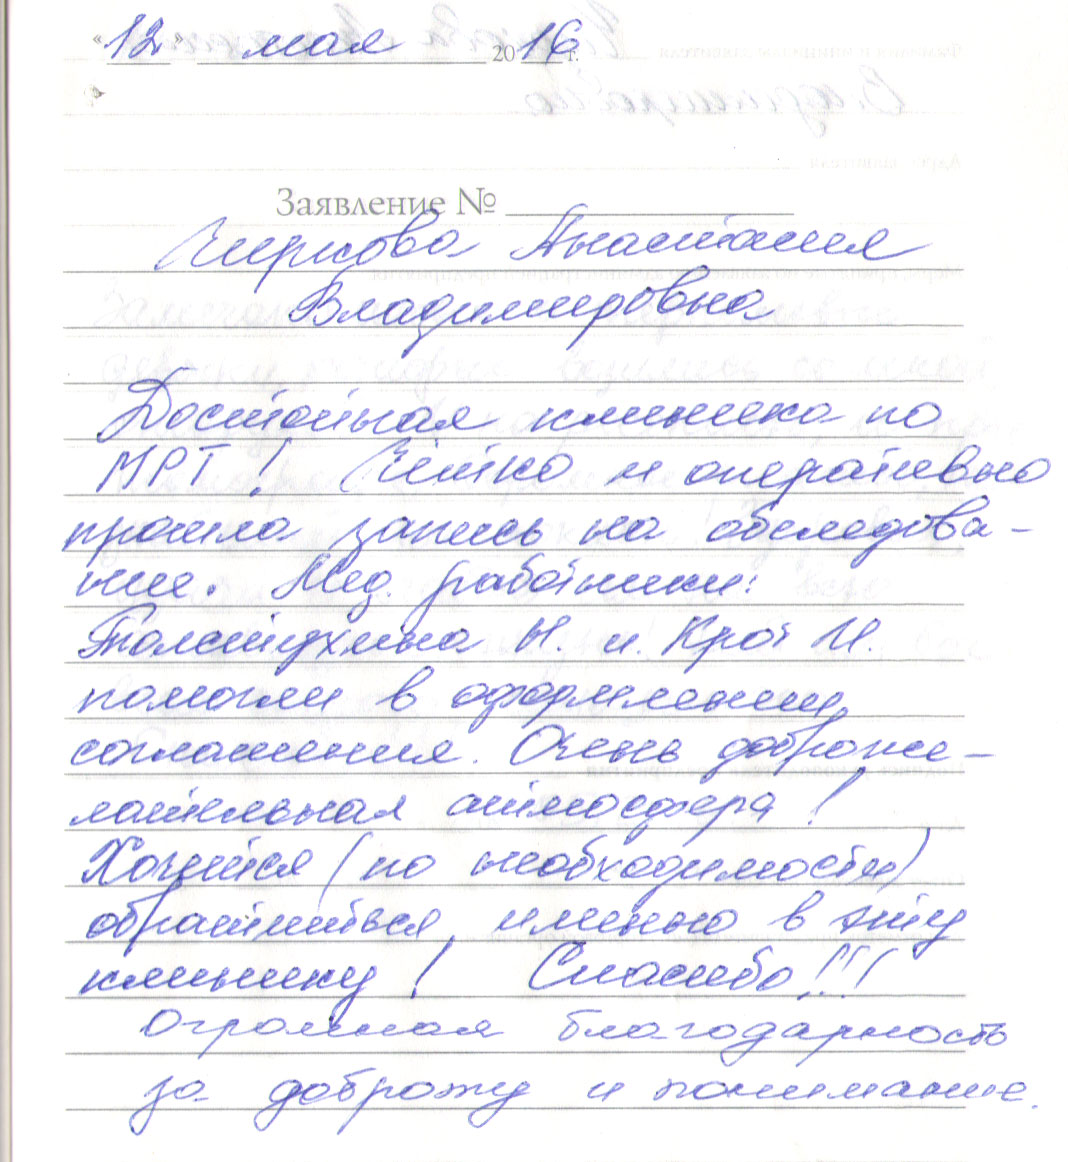 «12» мая 2016 г.
Заявление №
Чиркова Анастасия
Владимировна
Достойная клиника по
МРТ! Чётко и оперативно
прошла запись на обследова-
ние. Мед. работники:
Толстухина Н. и Крот И.
помогли в оформлении
соглашения. Очень доброже-
лательная атмосфера!
Хочется (по необходимости)
обратиться именно в эту
клинику! Спасибо!!!
Огромная благодарность
за доброту и понимание.